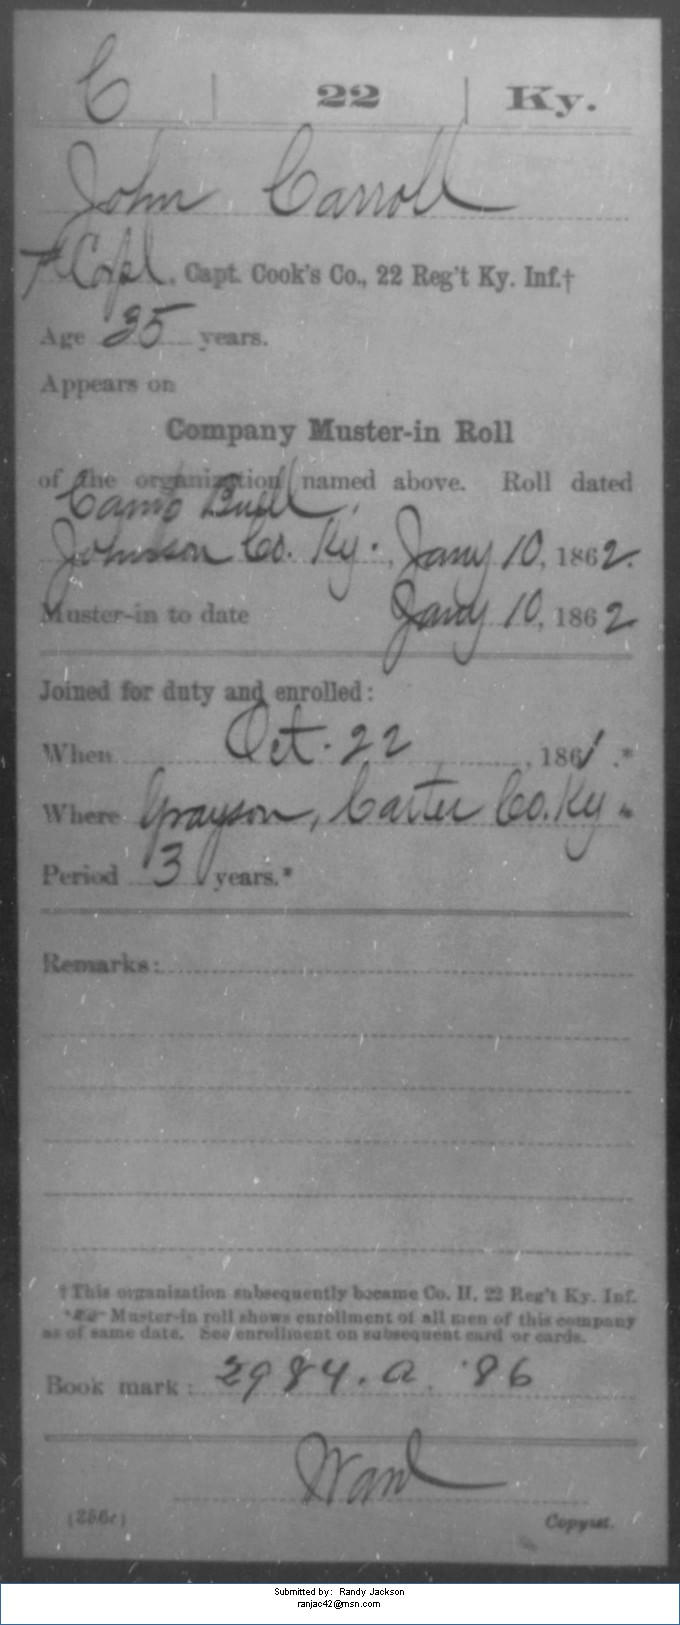 C | 22 | Ky.
John Carroll
Corpl., Capt. Cook's Co., 22 Reg't Ky. Inf.†
Age 35 years.
Appears on
Company Muster-in Roll
of the organization named above. Roll dated
Camp Buell,
Johnson Co. Ky., Jany 10, 1862.
Muster-in to date Jany 10, 1862
Joined for duty and enrolled:
When Oct. 22, 1861.*
Where Grayson, Carter Co. Ky.
Period 3 years.*
Remarks:
† This organization subsequently became Co. H, 22 Reg't Ky. Inf.
Muster-in roll shows enrollment of all men of this company
as of same date. See enrollment on subsequent card or cards.
Book mark: 2984.a.'86
Ward
(356c) Copyist.
Submitted by: Randy Jackson
ranjac42@msn.com